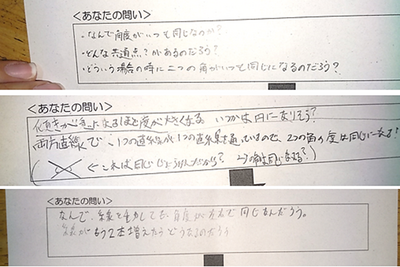 <あなたの問い>
・なんで角度がいつも同じなのか?
・どんな共通点?があるのだろう?
・どういう場合の時に二つの角がいつも同じになるのだろう?
<あなたの問い>
傾きが急になるほど度が大きくなる いつかは円になりそう?
両方直線で 1つの直線が1つの直線を通っているので、2つの角の度は同じになる?
← これは同じ
<あなたの問い>
なんで、線を動かしても、角度が左右で同じなんだろう。
線がもう2本増えたらどうなるのだろう